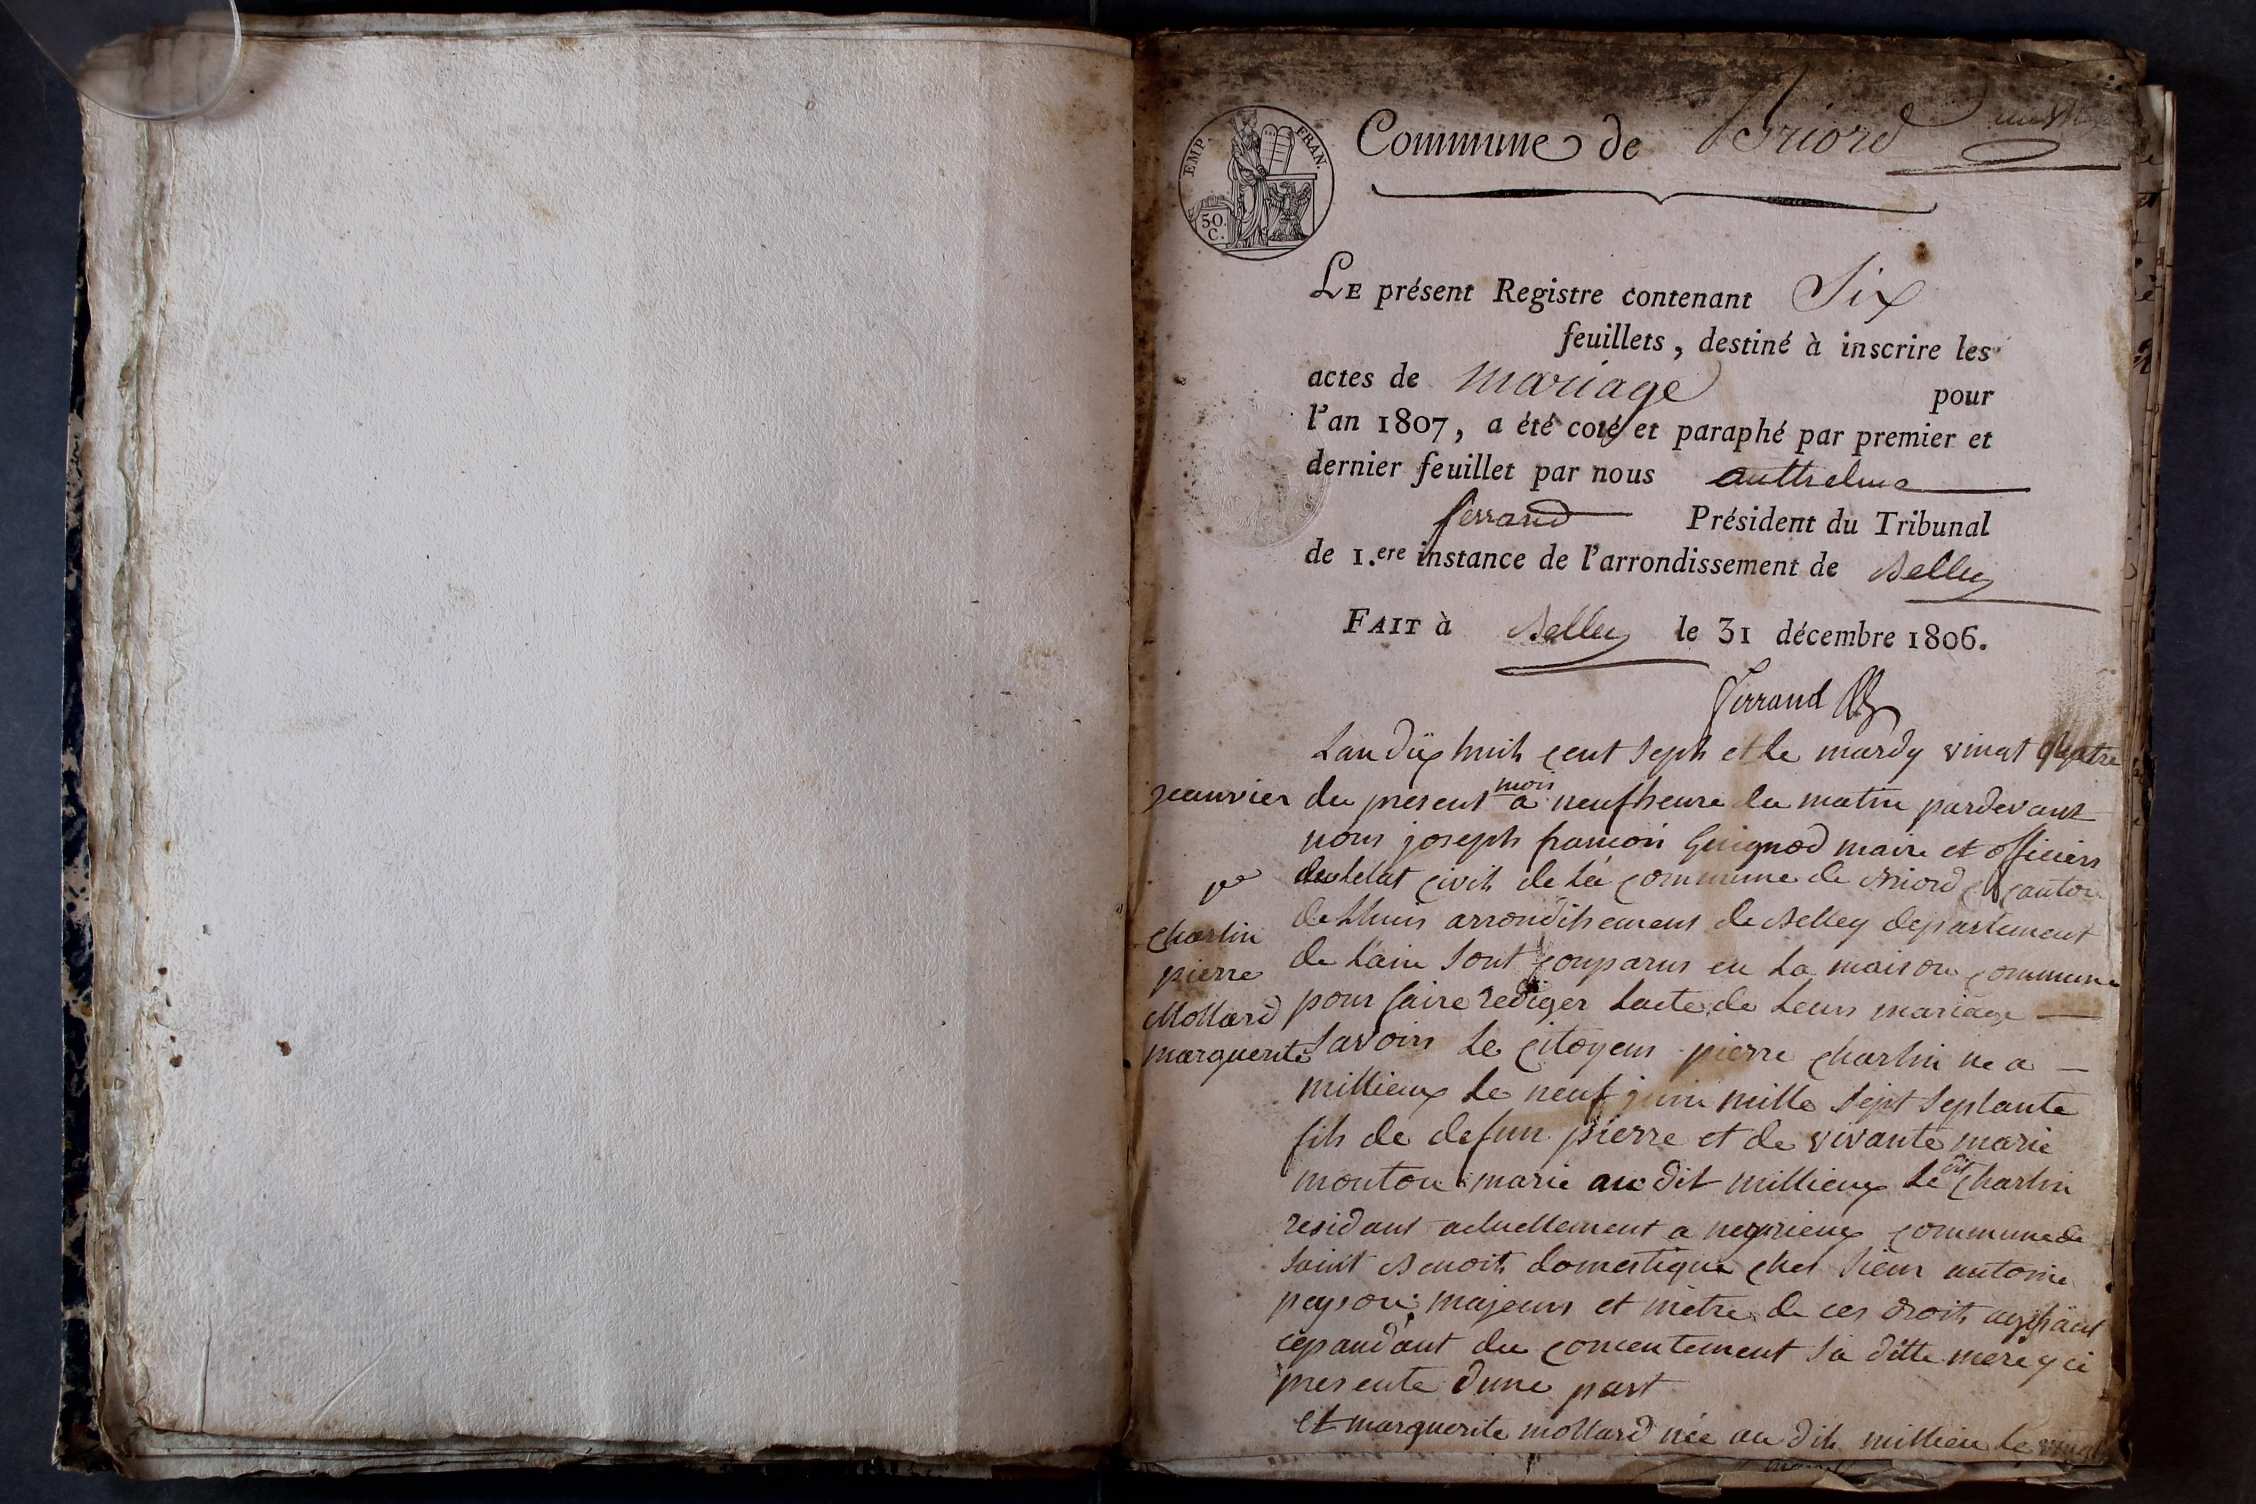 EMP. FRAN.
50.
C.
Commune de Briord
LE présent Registre contenant Six
feuillets, destiné à inscrire les
actes de mariage pour
l'an 1807, a été coté et paraphé par premier et
dernier feuillet par nous anthelme
ferrand Président du Tribunal
de 1.ere instance de l'arrondissement de Belley
FAIT à Belley le 31 décembre 1806.
Ferrand
Lan dix huit cent sept et le mardy vingt quatre
jeanvier du present mois a neuf heure du matin pardevant
nous joseph francois Guignod maire et officiers
de letat civil de la commune de Briord canton
de Lhuis arrondissement de Belley departement
de lain sont comparus en la maison commune
pour faire rediger lacte de leurs mariage
savoirs le citoyens pierre charlin ne a
millieux le neuf juin mille sept septante
fils de defun pierre et de vivante marie
mouton marie audit millieux le dit charlin
residant actuellement a neyrieux commune de
saint Benoit domestique chet sieur antoine
peyson majeurs et metre de ces droit agissant
cepandant du consentement sa ditte mere yci
presente dune part
et marguerite mollard née au dit millieu le vingt
charlin
pierre
Mollard
marguerite